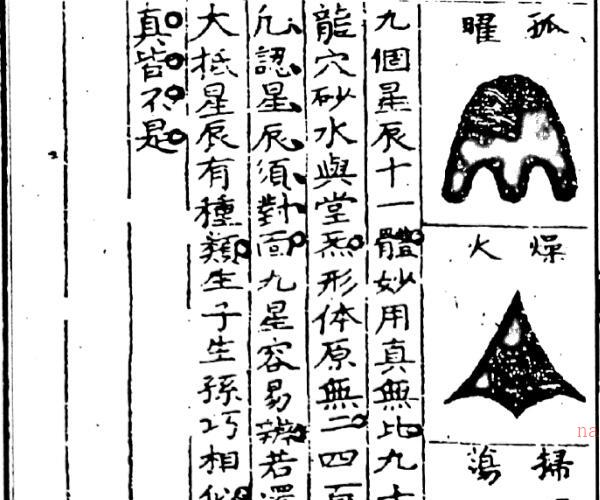 孤曜
燥火
掃蕩
九個星辰十一體妙用真無比九十
龍穴砂水與堂炁形体原無二四百
凡認星辰須對面九星容易辨若還
大抵星辰有種類生子生孫巧相似
真皆不是
na